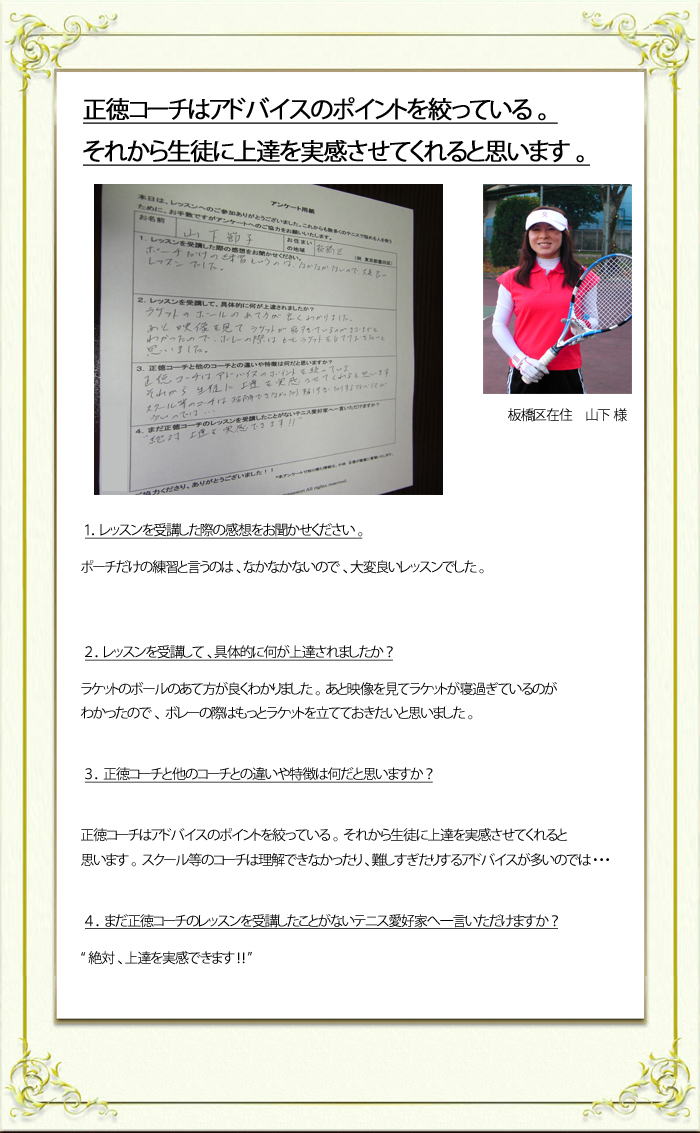 正徳コーチはアドバイスのポイントを絞っている。
それから生徒に上達を実感させてくれると思います。
アンケート用紙
本日は、レッスンへのご参加ありがとうございました。これからも数多くのテニスで悩める人を救う
ために、お手数ですがアンケートへのご協力をお願いいたします。
お名前 山下節子 お住まいの地域 板橋区 (例 東京都豊島区)
1. レッスンを受講した際の感想をお聞かせください。
ポーチだけの練習というのは、なかなかないので、大変良い
レッスンでした。
2. レッスンを受講して、具体的に何が上達されましたか?
ラケットのボールのあて方が良くわかりました。
あと映像を見てラケットが寝すぎているのが
わかったので、ボレーの際はもっとラケットを立てておきたいと
思いました。
3. 正徳コーチと他のコーチとの違いや特徴は何だと思いますか?
正徳コーチはアドバイスのポイントを絞っている
それから生徒に上達を実感させてくれると思います
スクール等のコーチは理解できなかったり難しすぎたりするアドバイスが
多いのでは…
4. まだ正徳コーチのレッスンを受講したことがないテニス愛好家へ一言いただけますか?
"絶対上達を実感できます!!"
ご協力くださり、ありがとうございました!!
All rights reserved.
板橋区在住 山下 様
1. レッスンを受講した際の感想をお聞かせください。
ポーチだけの練習と言うのは、なかなかないので、大変良いレッスンでした。
2. レッスンを受講して、具体的に何が上達されましたか?
ラケットのボールのあて方が良くわかりました。あと映像を見てラケットが寝過ぎているのが
わかったので、ボレーの際はもっとラケットを立てておきたいと思いました。
3. 正徳コーチと他のコーチとの違いや特徴は何だと思いますか?
正徳コーチはアドバイスのポイントを絞っている。それから生徒に上達を実感させてくれると
思います。スクール等のコーチは理解できなかったり、難しすぎたりするアドバイスが多いのでは・・・
4. まだ正徳コーチのレッスンを受講したことがないテニス愛好家へ一言いただけますか?
“絶対、上達を実感できます!!”